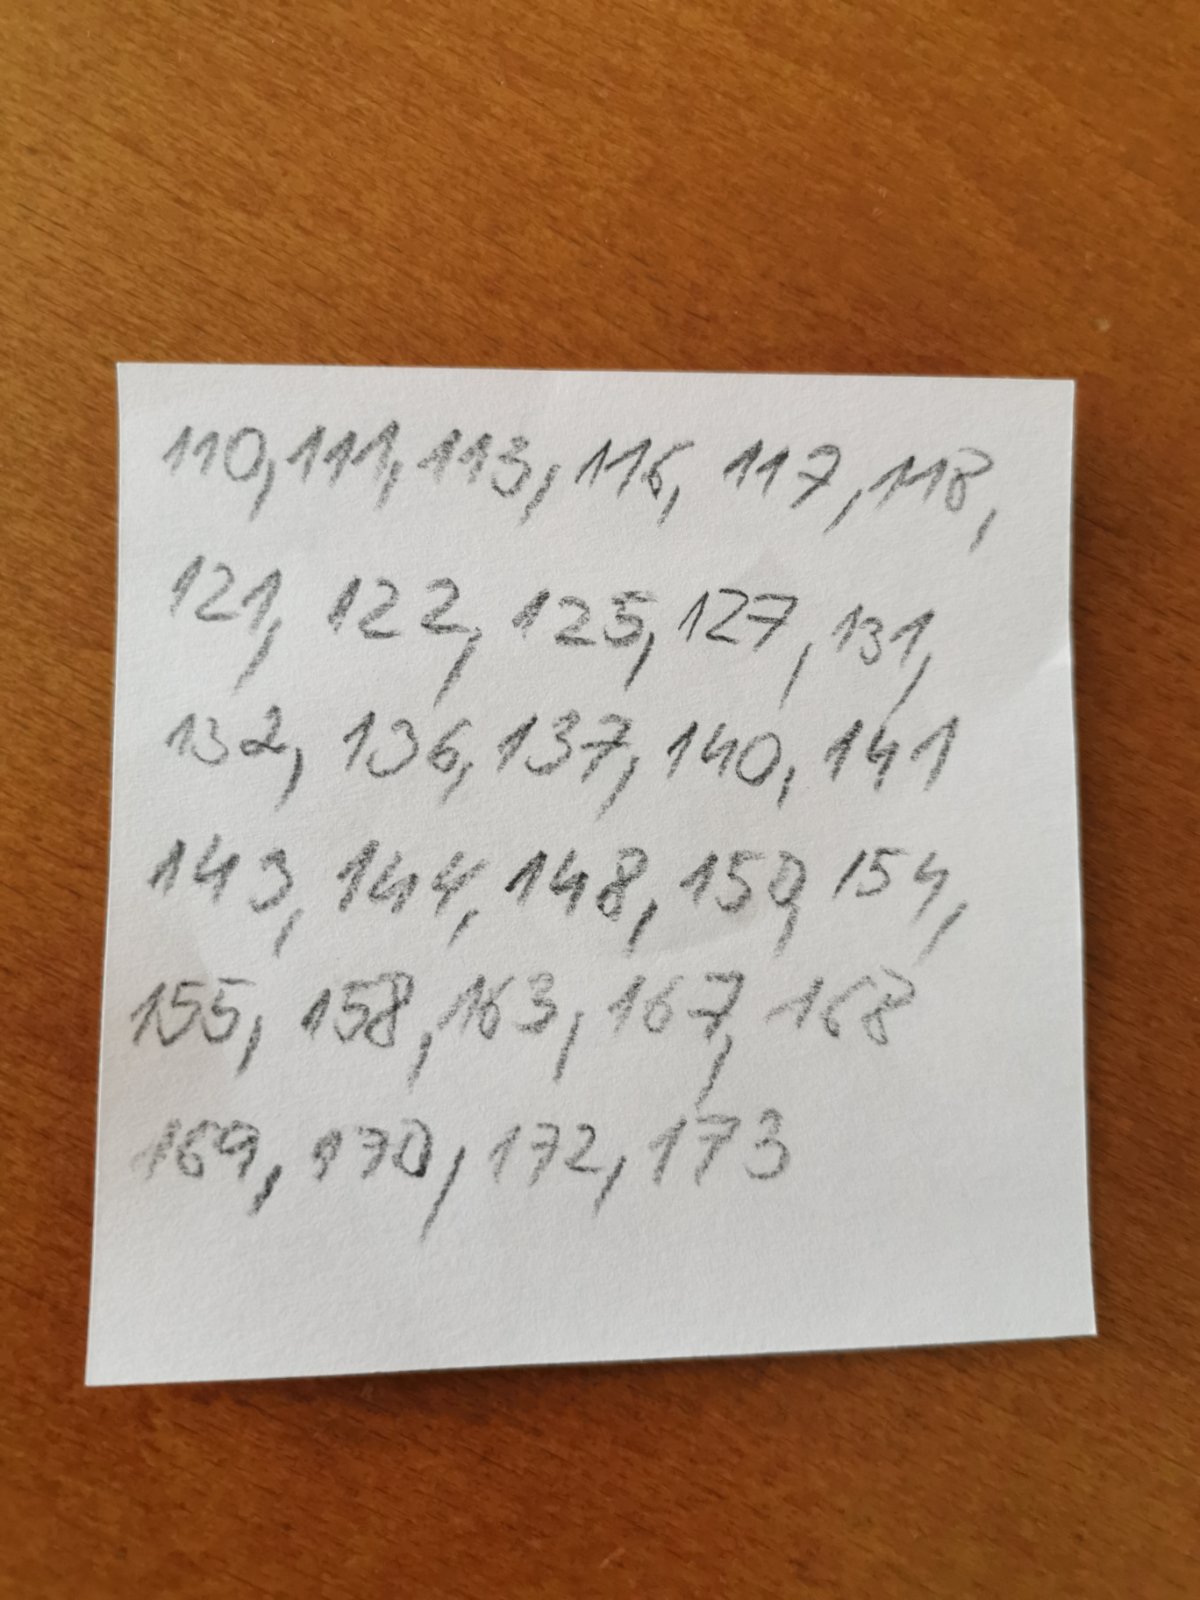 110, 111, 113, 116, 117, 118,
121, 122, 125, 127, 131,
132, 136, 137, 140, 141
143, 144, 148, 150, 154,
155, 158, 163, 167, 168
169, 170, 172, 173